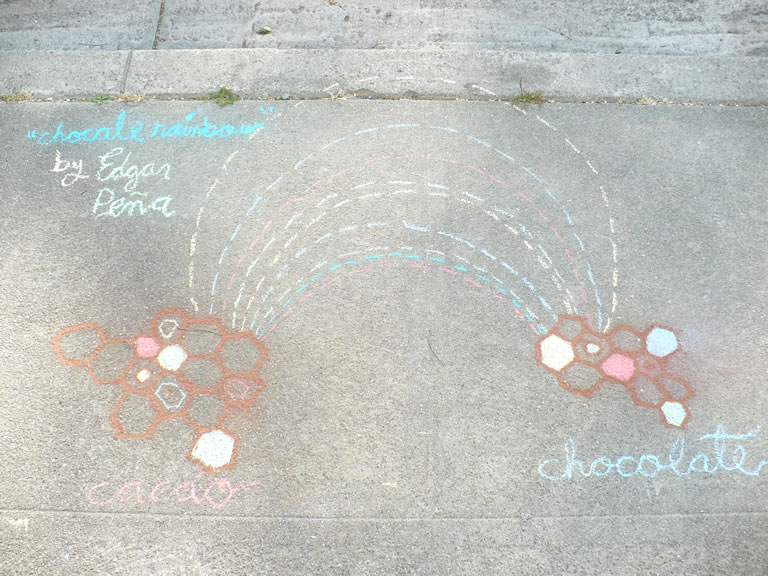 "chocale rainbow"
by Edgar
Peña
cacao
chocolate